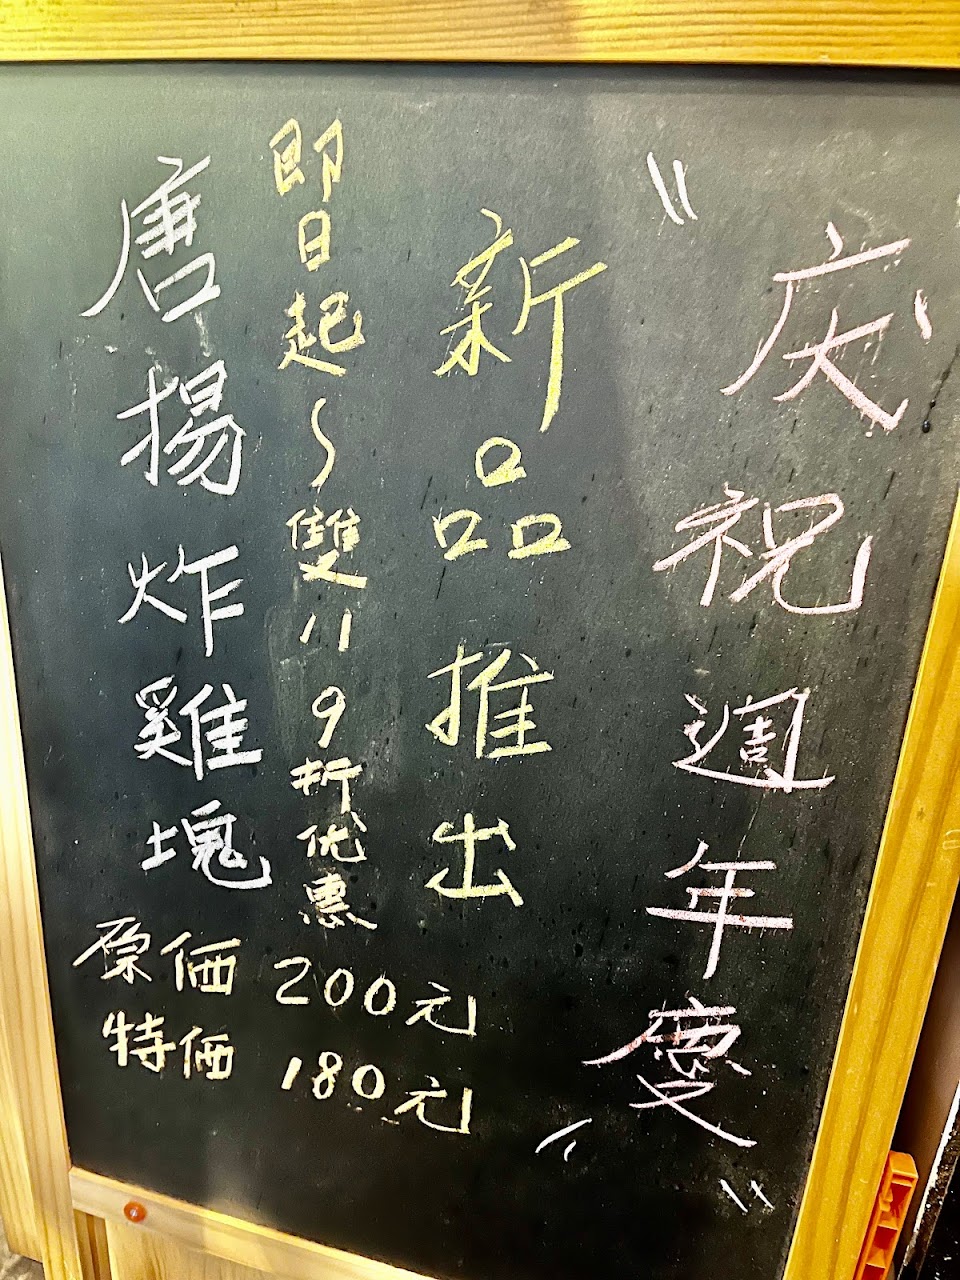 "庆祝週年慶"
新品推出
即日起~雙11 9折优惠
唐揚炸雞塊
原価 200元
特価 180元